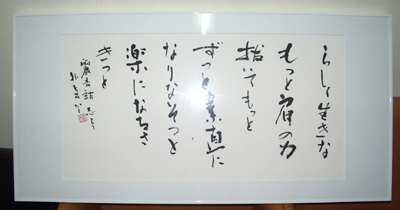 らしく生きな
もっと肩の力
抜いてもっと
ずっと素直に
なりなそっと
楽になるさ
きっと